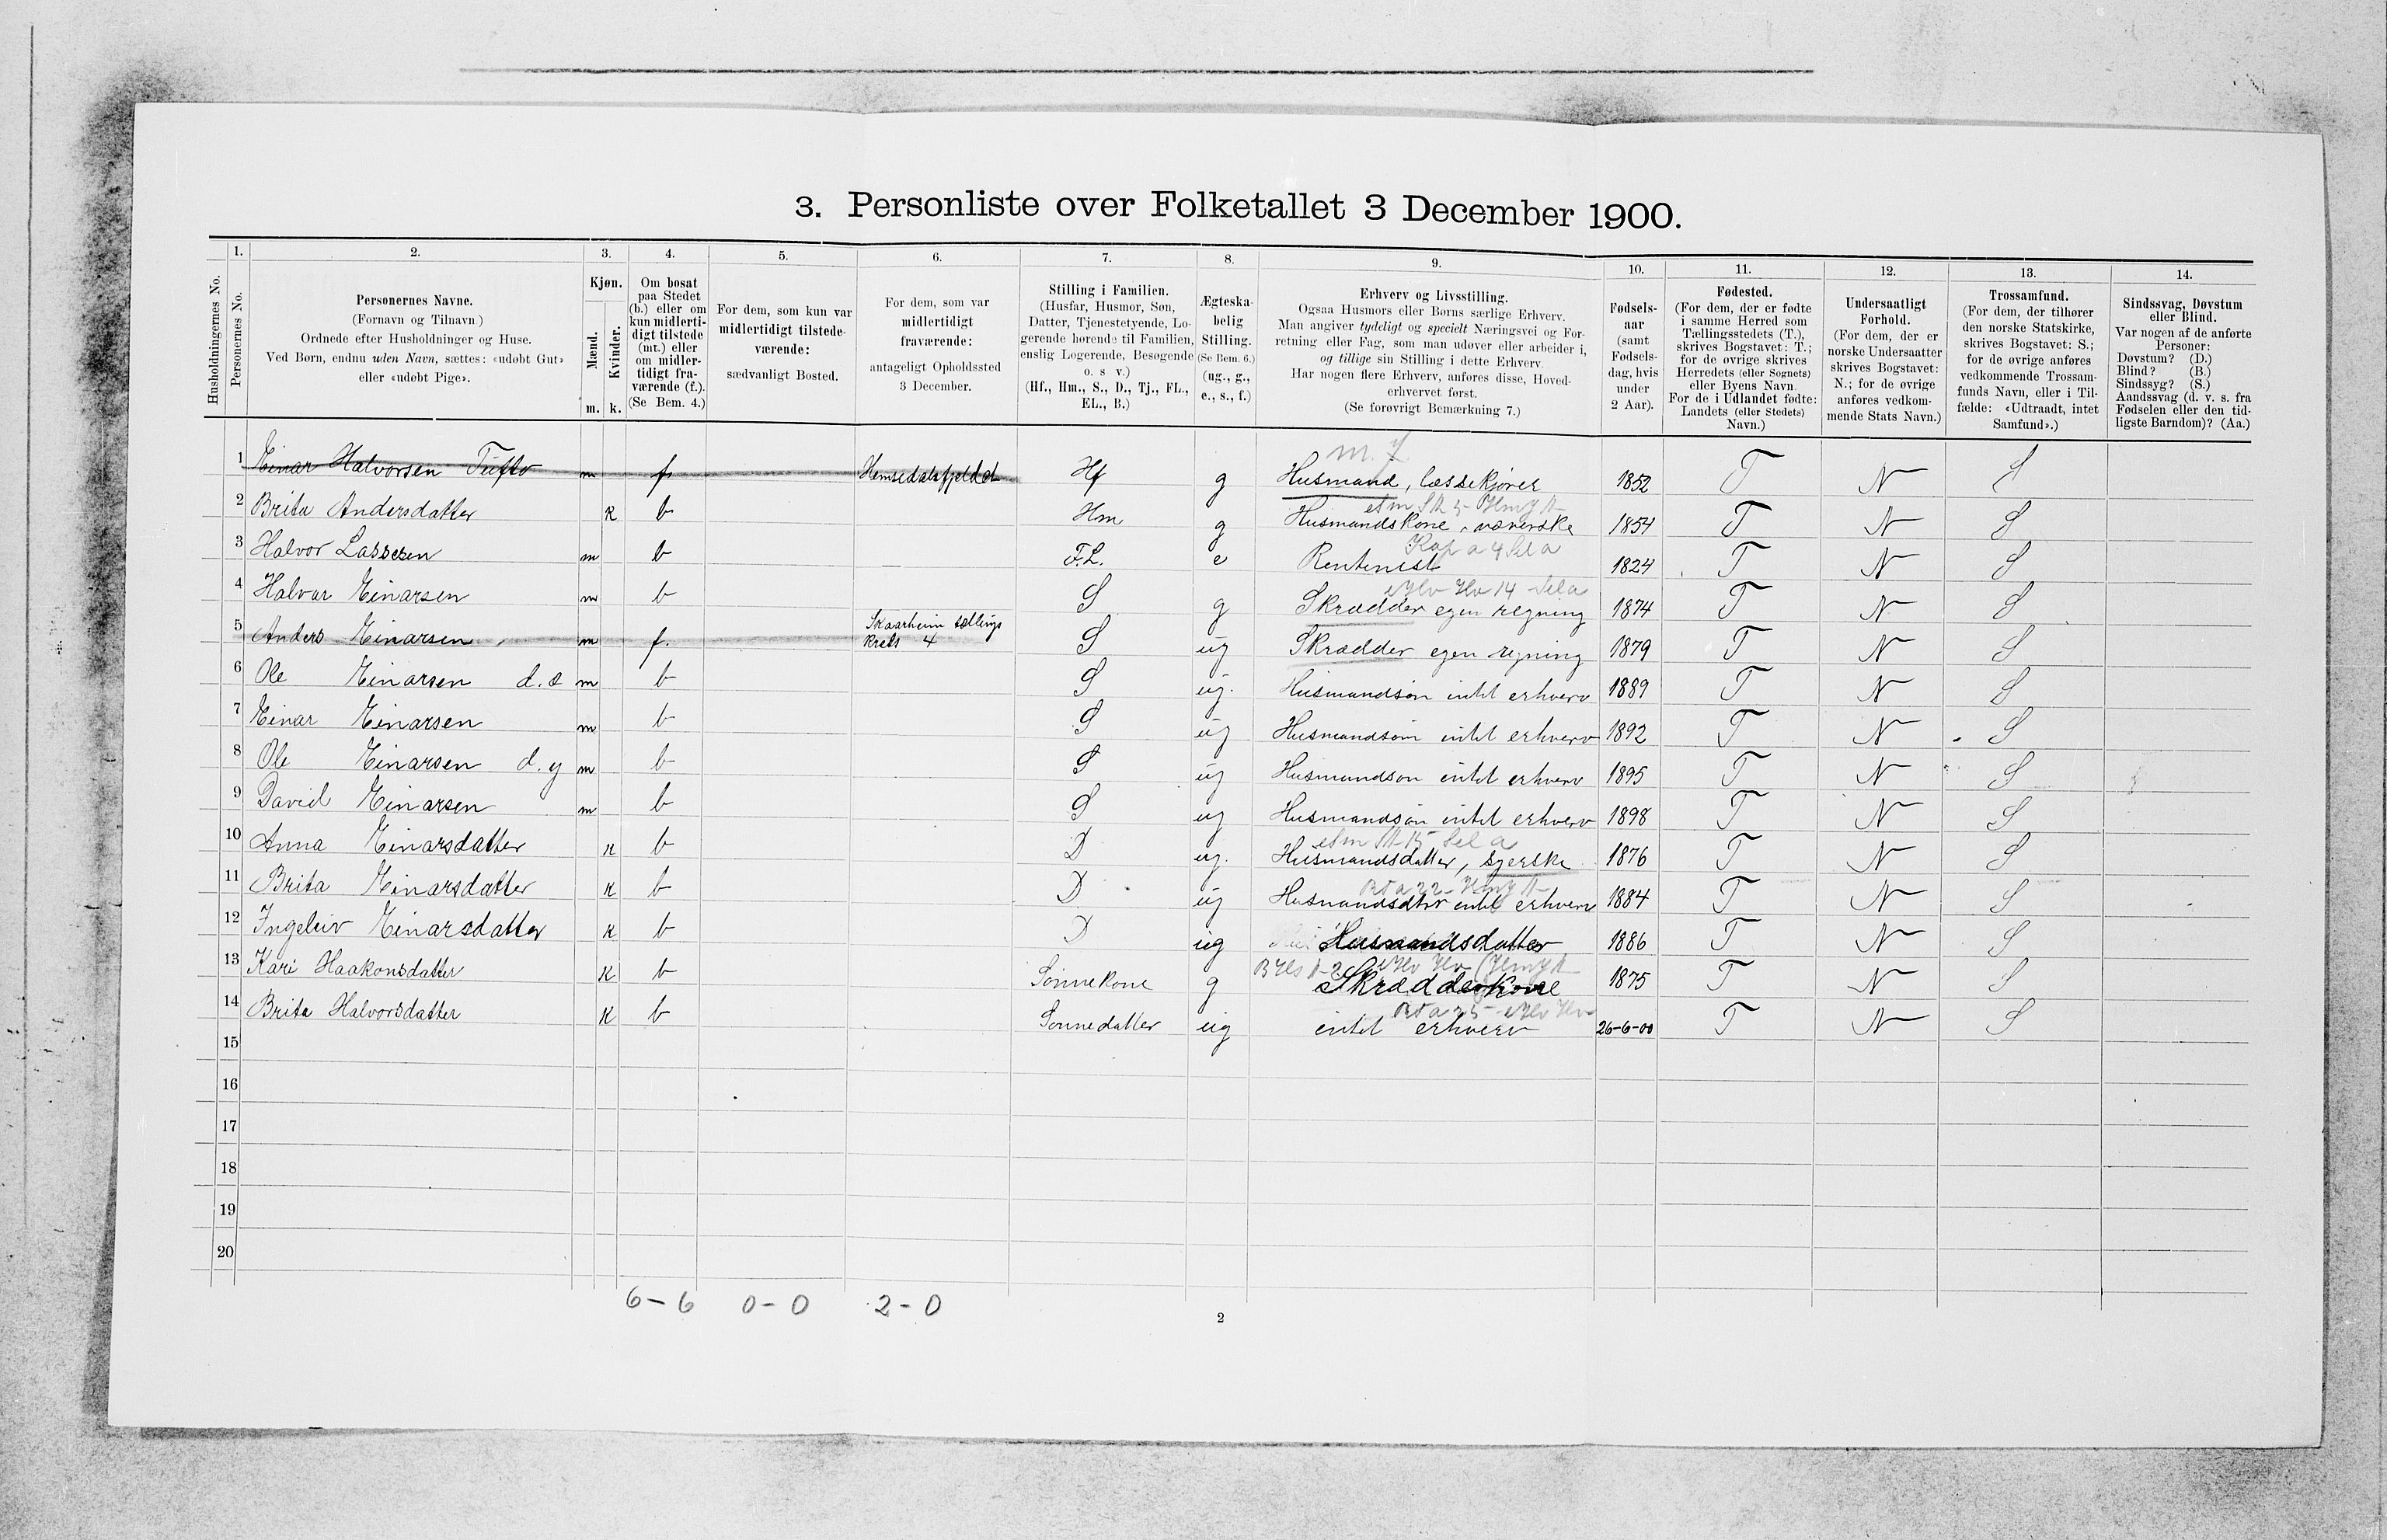 3. Personliste over Folketallet 3 December 1900.
1. 2. 3. 4. 5. 6. 7. 8. 9. 10. 11. 12. 13. 14.
Husholdningernes No.
Personernes No.
Personernes Navne.
(Fornavn og Tilnavn.)
Ordnede efter Husholdninger og Huse.
Ved Børn, endnu uden Navn, sættes: «udøbt Gut»
eller «udøbt Pige».
Kjøn.
Mænd.
Kvinder.
m. k.
Om bosat
paa Stedet
(b.) eller om
kun midlerti-
digt tilstede
(mt.) eller
om midler-
tidigt fra-
værende (f.).
(Se Bem. 4.)
For dem, som kun var
midlertidigt tilstede-
værende:
sædvanligt Bosted.
For dem, som var
midlertidigt
fraværende:
antageligt Opholdssted
3 December.
Stilling i Familien.
(Husfar, Husmor, Søn,
Datter, Tjenestetyende, Lo-
gerende hørende til Familien,
enslig Logerende, Besøgende
o. s v.)
(Hf., Hm., S., D., Tj., FL.,
EL., B.)
Ægteska-
belig
Stilling.
(Se Bem. 6.)
(ug., g.,
e., s., f.)
Erhverv og Livsstilling.
Ogsaa Husmors eller Børns særlige Erhverv.
Man angiver tydeligt og specielt Næringsvei og For-
retning eller Fag, som man udøver eller arbeider i,
og tillige sin Stilling i dette Erhverv.
Har nogen flere Erhverv, anføres disse, Hoved-
erhvervet først.
(Se forøvrigt Bemærkning 7.)
Fødsels-
aar
(samt
Fødsels-
dag, hvis
under
2 Aar).
Fødested.
(For dem, der er fødte
i samme Herred som
Tællingsstedets (T.),
skrives Bogstavet: T.;
for de øvrige skrives
Herredets (eller Sognets)
eller Byens Navn.
For de i Udlandet fødte:
Landets (eller Stedets)
Navn.)
Undersaatligt
Forhold.
(For dem, der er
norske Undersaatter
skrives Bogstavet:
N.; for de øvrige
anføres vedkom-
mende Stats Navn.)
Trossamfund.
(For dem, der tilhører
den norske Statskirke,
skrives Bogstavet: S.;
for de øvrige anføres
vedkommende Trossam-
funds Navn, eller i Til-
fælde: «Udtraadt, intet
Samfund».)
Sindssvag, Døvstum
eller Blind.
Var nogen af de anførte
Personer:
Døvstum? (D.)
Blind? (B.)
Sindssyg? (S.)
Aandssvag (d. v. s. fra
Fødselen eller den tid-
ligste Barndom)? (Aa.)
1 Einar Halvorsen Tufto m f Hemsedalsfjeldet Hf g Husmand, læssekjører 1852 T N S
2 Brita Andersdatter k b Hm g Husmandskone, væverske 1854 T N S
3 Halvor Lassesen m b F.L. e Rentenist 1824 T N S
4 Halvar Einarsen m b S g Skrædder egen regning 1874 T N S
5 Anders Einarsen m f. Skaarheim tællings
kreds 4 S ug Skrædder egen regning 1879 T N S
6 Ole Einarsen d.æ m b S ug. Husmandsøn intet erhverv 1889 T N S
7 Einar Einarsen m b S ug Husmandsøn intet erhverv 1892 T N S
8 Ole Einarsen d.y m b S ug Husmandsøn intet erhverv 1895 T N S
9 David Einarsen m b S ug Husmandsøn intet erhverv 1898 T N S
10 Anna Einarsdatter k b D ug. Husmandsdatter, syerske 1876 T N S
11 Brita Einarsdatter k b D ug Husmandsdtr intet erhverv 1884 T N S
12 Ingeleiv Einarsdatter k b D ug Husmandsdatter 1886 T N S
13 Kari Haakonsdatter k b Sønnekone g Skrædderkone 1875 T N S
14 Brita Halvorsdatter k b Sønnedatter ug intet erhverv 26-6-00 T N S
15
16
17
18
19
20
6-6 0-0 2-0
2